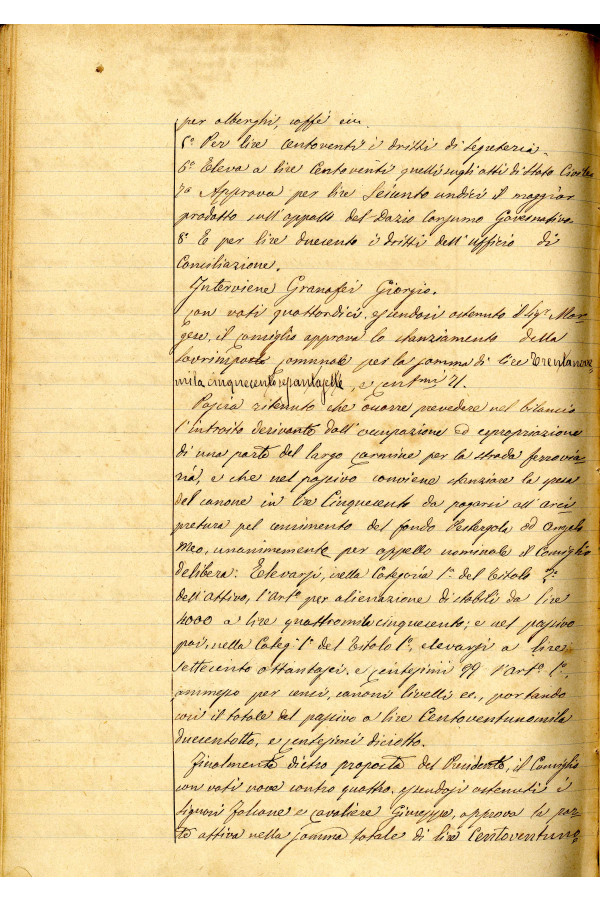 per alberghi, caffé ecc.
5° Per lire Centoventi i dritti di segreteria.
6° Eleva a lire Centoventi quelli sugli atti di Stato Civile
7° Approva per lire Seicento undici il maggior
prodotto sull'appalto del Dazio Consumo Governativo.
8° E per lire duecento i dritti dell'ufficio di
Conciliazione.
Interviene Granafei Giorgio.
Con voti quattordici, essendosi astenuto il Sig. Mar-
gese, il Consiglio approva lo stanziamento della
Sovrimposta Comunale per la somma di lire trentanove-
mila cinquecento, e centmi 21.
Poscia ritenuto che occorre prevedere nel bilancio
l'introito derivante dall'occupazione ed espropriazione
di una parte del largo Carmine per la strada ferrovia-
ria, e che nel passivo conviene stanziare la spesa
del canone in lire Cinquecento da pagarsi all'arci-
pretura pel censimento del fondo ad Angelo
Meo, unanimemente per appello nominale il Consiglio
delibera: Elevarsi, nella Categoria 1ª del titolo 2°
dell'attivo, l'Art° per alienazione di stabili da lire
4000 a lire quattromila cinquecento; e nel passivo
poi, nella Categ. 1ª del Titolo 1°, elevarsi a lire
settecento ottantasei, e centesimi 99 l'Art° 1°,
ammesso per censi, canoni livelli, ec., portando
così il totale del passivo a lire Centoventunomila
duecentotto, e centesimi diciotto.
Finalmente dietro proposta del Presidente, il Consiglio
con voti nove contro quattro, essendosi astenuti i
signori Foliane e Cavaliere Giuseppe, approva la par-
te attiva nella somma totale di lire Centoventuno-